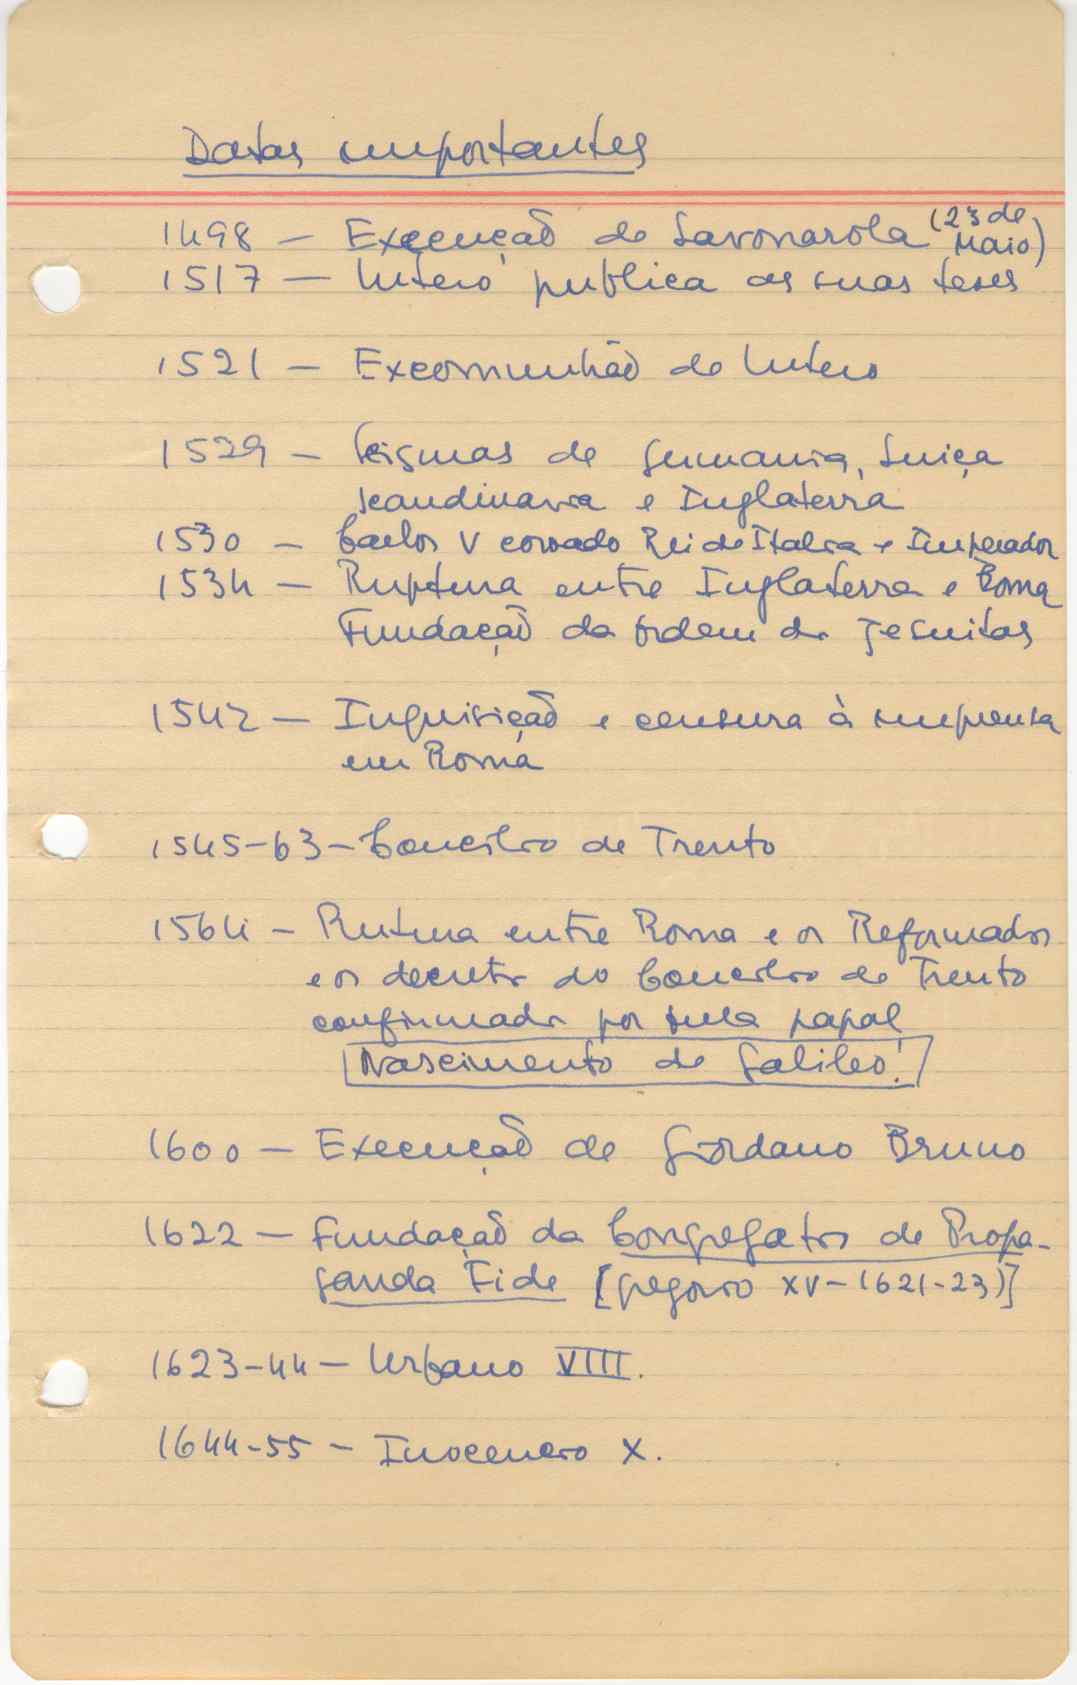 Datas importantes
1498 – Execução de Savonarola (23 de
Maio)
1517 – Lutero publica as suas teses
1521 – Excomunhão de Lutero
1529 – Cismas de Germania, Suiça
Scandinavia e Inglaterra
1530 – Carlos V coroado Rei de Italia e Imperador
1534 – Ruptura entre Inglaterra e Roma
Fundação da Ordem dos Jesuitas
1542 – Inquisição e censura à imprensa
em Roma
1545-63 – Concilio de Trento
1564 – Rutura entre Roma e os Reformados
e os decretos do Concilio de Trento
confirmados por bula papal
Nascimento de Galileo!
1600 – Execução de Giordano Bruno
1622 – Fundação da Congregatio de Propa-
ganda Fide [Gregorio XV – 1621-23)]
1623-44 – Urbano VIII.
1644-55 – Inocencio X.